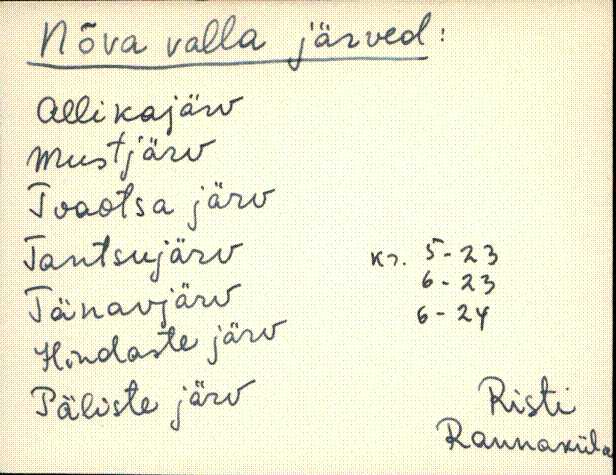 Nõva valla järved:
Allikajärv
Mustjärv
Toaotsa järv
Tantsujärv
Tänavjärv
Hindaste järv
Päliste järv
kr. 5-23
6-23
6-24
Risti
Rannaküla